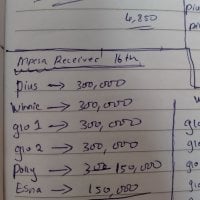 4,850
Mpesa Received 16th
Pius → 300,000
Winnie → 300,000
glo 1 → 300,000
glo 2 → 300,000
Polly → 150,000
Esna → 150,000